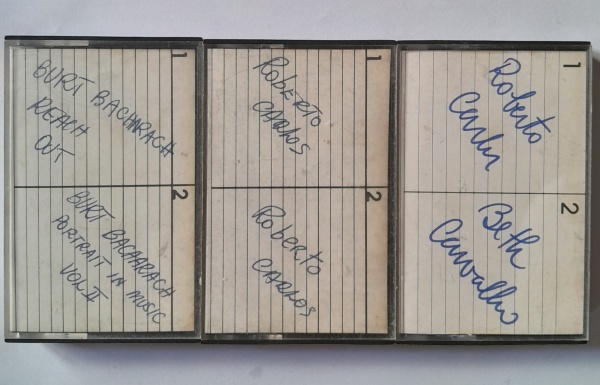 1
BURT BACHARACH
REACH
OUT
2
BURT BACHARACH
PORTRAIT IN MUSIC
VOL II
1
ROBERTO
CARLOS
2
Roberto
CARLOS
1
Roberto
Carlos
2
Beth
Carvalho